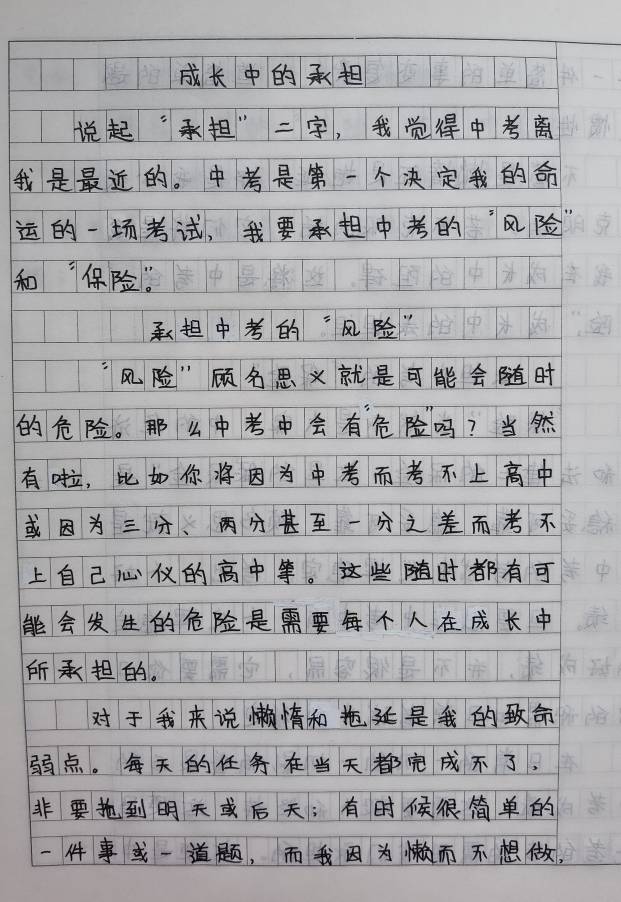 成长中的承担
说起“承担”二字，我觉得中考离
我是最近的。中考是第一个决定我的命
运的一场考试，我要承担中考的“风险”
和“保险”。
承担中考的“风险”
“风险”顾名思义就是可能会随时
的危险。那么中考中会有“危险”吗？当然
有啦，比如你将因为中考而考不上高中
或因为三分、两分甚至一分之差而考不
上自己心仪的高中等。这些随时都有可
能会发生的危险是需要每个人在成长中
所承担的。
对于我来说懒惰和拖延是我的致命
弱点。每天的任务在当天都完成不了，
非要拖到明天或后天；有时候很简单的
一件事或一道题，而我因为懒而不想做，